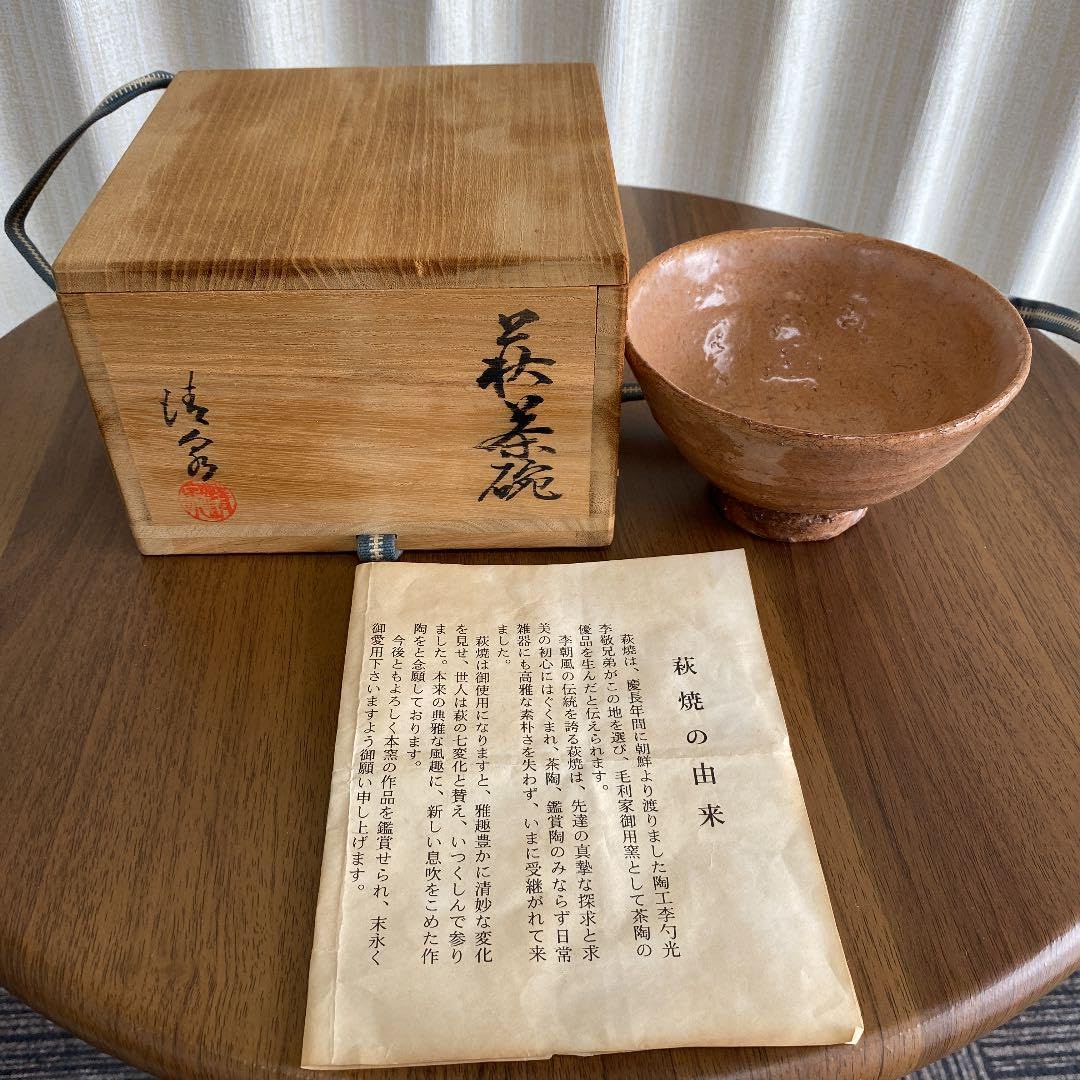 萩茶碗
清泉
萩焼の由来
萩焼は、慶長年間に朝鮮より渡りました陶工李勺光
李敬兄弟がこの地を選び、毛利家御用窯として茶陶の
優品を生んだと伝えられます。
李朝風の伝統を誇る萩焼は、先達の真摯な探求と求
美の初心にはぐくまれ、茶陶、鑑賞陶のみならず日常
雑器にも高雅な素朴さを失わず、いまに受継がれて来
ました。
萩焼は御使用になりますと、雅趣豊かに清妙な変化
を見せ、世人は萩の七変化と賛え、いつくしんで参り
ました。本来の典雅な風趣に、新しい息吹をこめた作
陶をと念願しております。
今後ともよろしく本窯の作品を鑑賞せられ、末永く
御愛用下さいますよう御願い申し上げます。